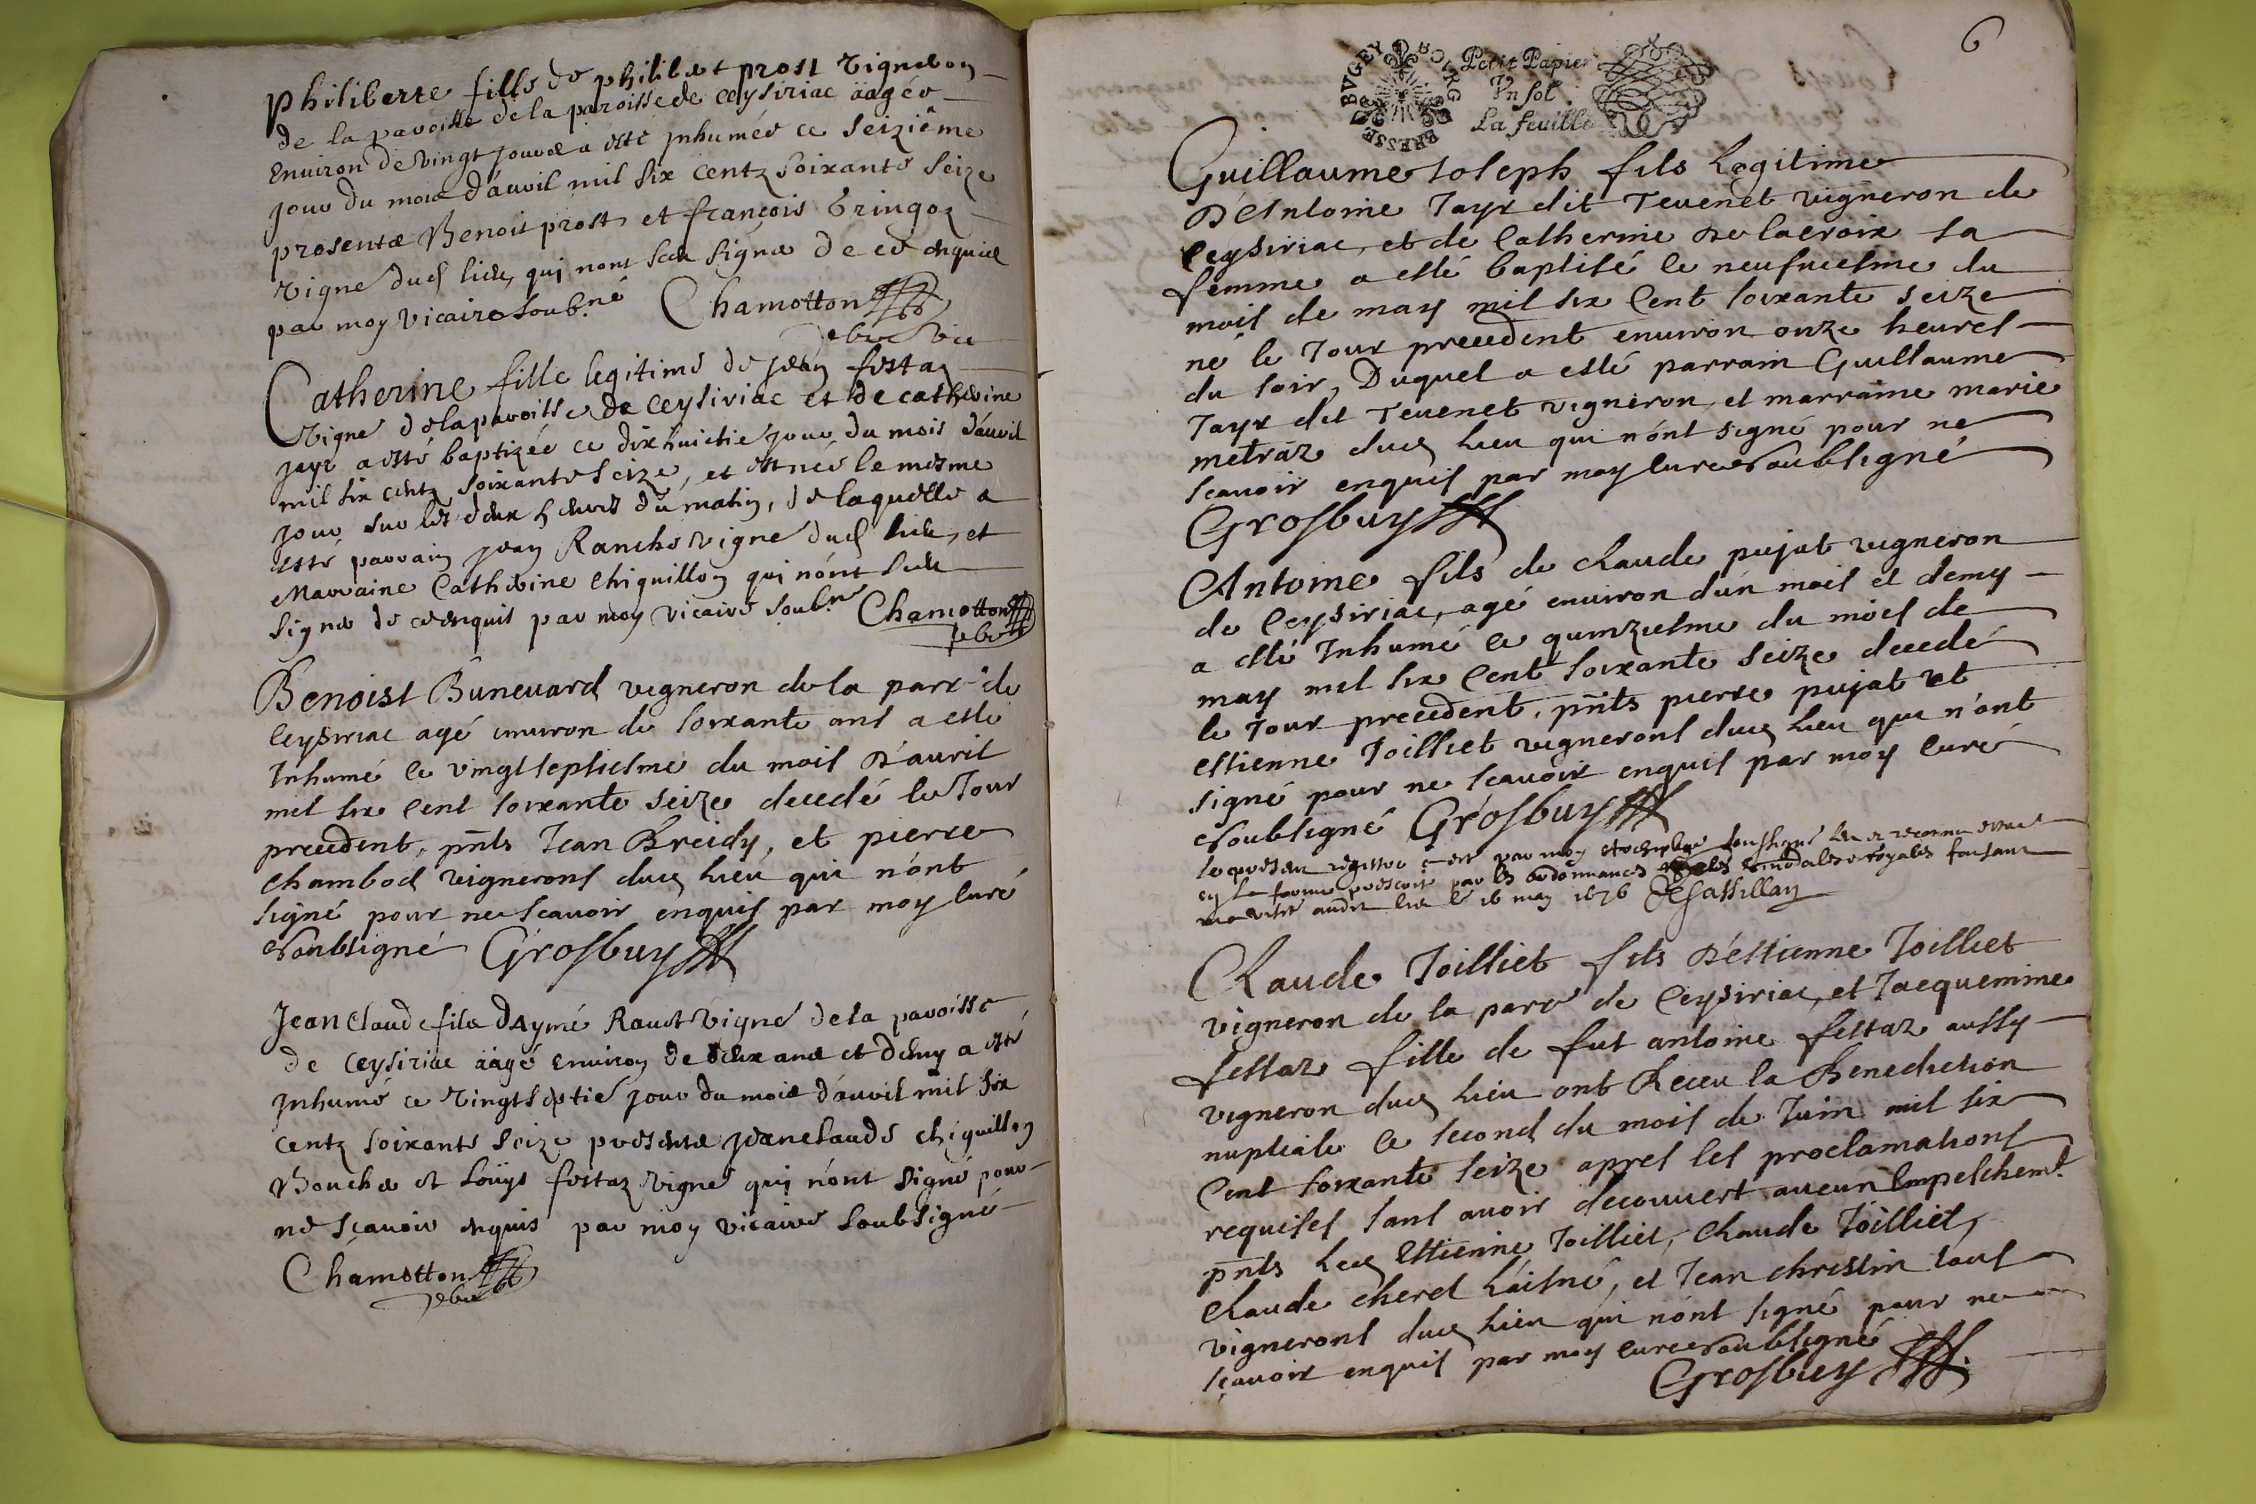 Philiberte fille de philibert prost vigneron
de la paroisse de la paroisse de ceysiriac äagée
environ de vingt jours a esté jnhumée ce seizième
jour du mois d'avril mil six centz soixante seize
presents Benoit prost et françois
vigne dud lieu, qui nont sceu signer de ce enquis
par moy vicaire soubné Chamotton
vic
Catherine fille legitime de jean festaz
vigne de la paroisse de ceysiriac et de catherine
jayr a esté baptizée ce dix huictie jour du mois d'avril
mil six centz soixante seize, et est née le mesme
jour sur les deux heures du matin, de laquelle a
esté parrain jean Ranche vigne dud lieu, et
Marraine Catherine chiquillon qui nont sceu
signer de ce enquis par moy vicaire soubné Chamotton
Benoist Bunevard vigneron de la parr de
Ceysiriac agé environ de soixante ans a esté
Inhumé le vingt septiesme du mois d'avril
mil six cent soixante seize decedé le Jour
precedent, pnts Jean Breidy, et pierre
Chambod vignerons dud lieu qui n'ont
signé pour ne scavoir enquis par moy curé
soubsigné Grosbuy
Jean Claude fils d'Aymé Raust vigne de la paroisse
de ceysiriac äagé environ de deux ans et demy a esté
jnhumé ce vingt septie jour du mois d'avril mil six
centz soixante seize presents jean claude chiquillon
Bouche et Loüys festaz vigne qui n'ont signé pour
ne sçavoir enquis par moy vicaire soubsigné
Chamotton
6
BRESSE BVGEY BOVRG
Petit Papier
Vn sol
La feuille
Guillaume Joseph fils legitime
D'Antoine Jayr dit Tevenet vigneron de
Ceysiriac, et de Catherine Delacroix sa
femme a esté baptisé le neufviesme du
mois de may mil six cent soixante seize
né le Jour precedent environ onze heures
du soir, Duquel a esté parrain Guillaume
Jayr dit Tevenet vigneron, et marraine marie
metraz dud lieu qui n'ont signé pour ne
scavoir enquis par moy curé soubsigné
Grosbuy
Antoine fils de claude pujat vigneron
de Ceysiriac, agé environ d'un mois et demy
a esté Inhumé le quinziesme du mois de
may mil six cent soixante seize decedé
le Jour precedent, pnts pierre pujat et
estienne Joilliet vignerons dud lieu qui n'ont
signé pour ne scavoir enquis par moy curé
soubsigné Grosbuy
le present registre a esté par moy soussigné veu et reconnu estre
en la forme prescrite par les ordonnances royales faisant
ma visite audit lieu le 16 may 1676
Claude Joilliet fils d'Estienne Joilliet
vigneron de la parr de Ceysiriac, et Jacquemine
festaz fille de fut antoine festaz aussy
vigneron dud lieu ont Receu la Benediction
nuptiale le second du mois de Juin mil six
Cent soixante seize apres les proclamations
requises sans avoir decouvert aucun Empeschemt
pnts led Estienne Joilliet, claude Joilliet,
Claude cherel l'aisné, et Jean chrestin tous
vignerons dud lieu qui n'ont signé pour ne
sçavoir enquis par moy curé soubsigné
Grosbuy